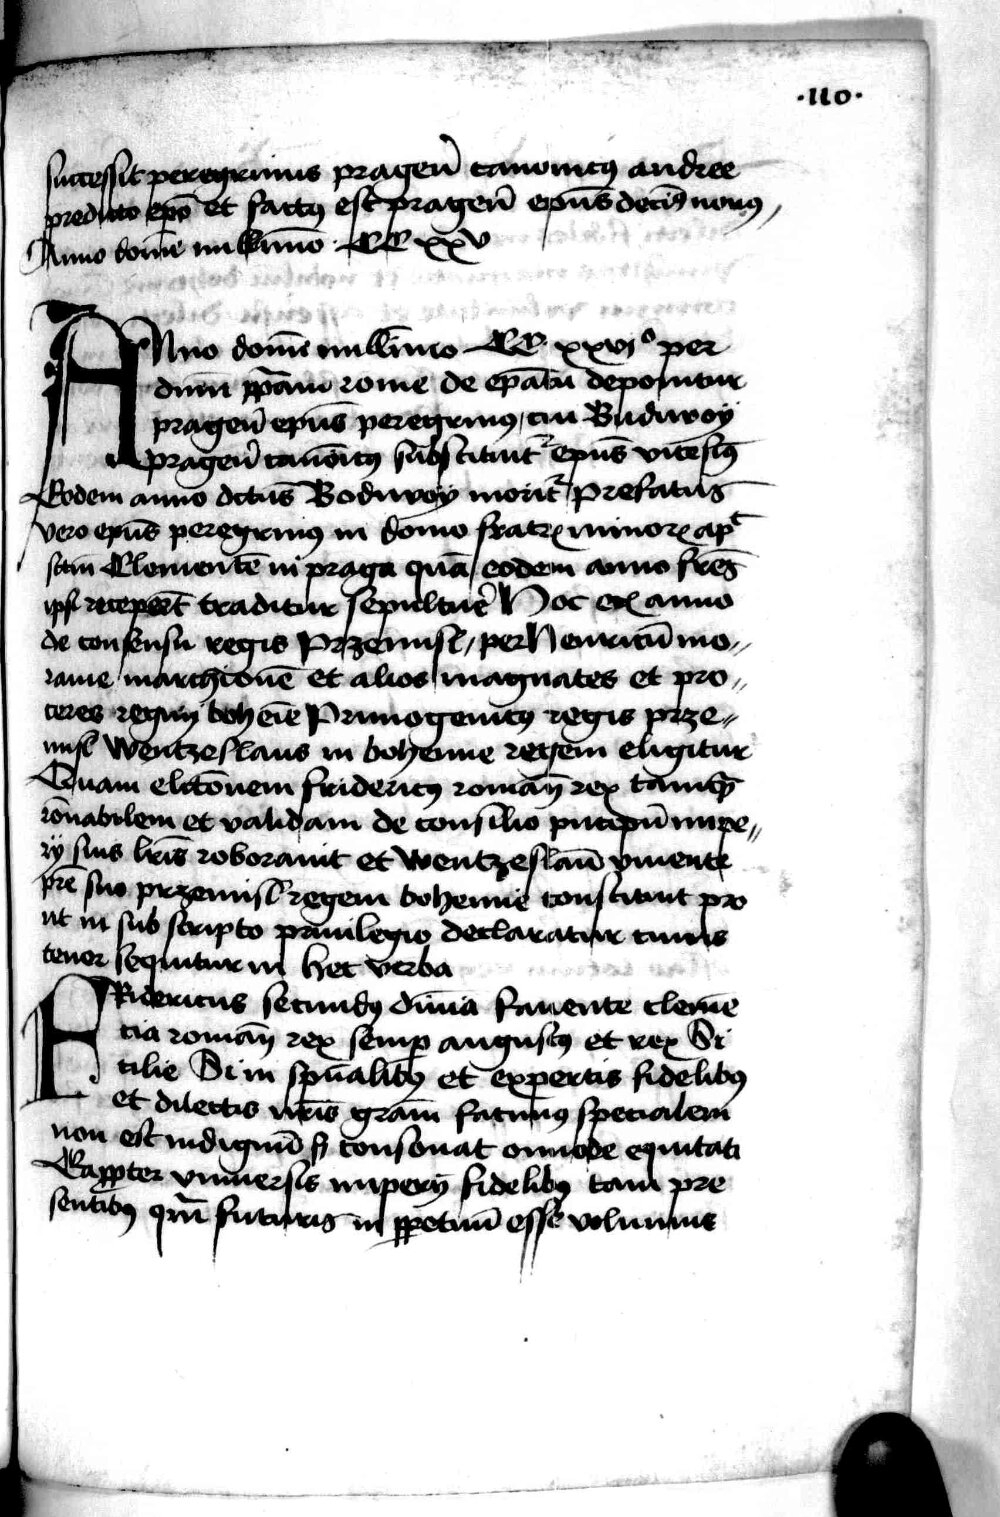 ·110·
successit peregrinus pragen̄ canonicꝯ andree
predicto ep̄o et factꝯ est pragen̄ ep̄us decīꝯ nonꝯ
Anno domīe millīmo CC xxv
Anno domīe millīmo CC xxvi° per
dnm̄ pp̄am rome de ep̄atu deponitur
pragen̄ ep̄us peregrinꝯ, cui Budiwoy
pragen̄ canōicꝯ substituit᷑ ep̄us vicesiꝯ
Eodem anno dc̄us Bodiwoy morit᷑ Prefatus
vero ep̄us peregrinꝯ in domo fratrꝝ minorꝝ ap̄
sc̄m Clementē in praga quā eodem anno fr̄es
ipsi recepert̄ traditur sepultur̄ Hoc eꝉ anno
de consensu regis Przemisl, per Henricū mo〃
rauie marchionē et alios magnates et pro〃
ceres regnij bohēie Primogenitꝯ regis prze〃
misl Wentzeslaus in bohemie regem eligitur
Quam elcōnem fridericꝯ roman̄ rex tamq̄
rōnabilem et validam de consilio pncipū impe〃
rij suis lr̄is roborauit et Wentzeslaū viuente
pr̄e suo przemisl regem bohemie constituit pro
ut in sub scripto priuilegio declaratur cuius
tenor sequitur in hec verba
Fridericus secundꝯ diuīa fauente clemē
cia roman̄ rex semp̄ augustꝯ et rex Si
cilie Si in spūalibꝯ et expertis fidelibꝯ
et dilectis nr̄is gram̄ facimꝯ specialem
non est indignū sꝫ consonat omnode equitati
Eapp̄ter vniuersis imperij fidelibꝯ tam pre
sentibꝯ qm̄ futuris in pp̄etuū esse volumus